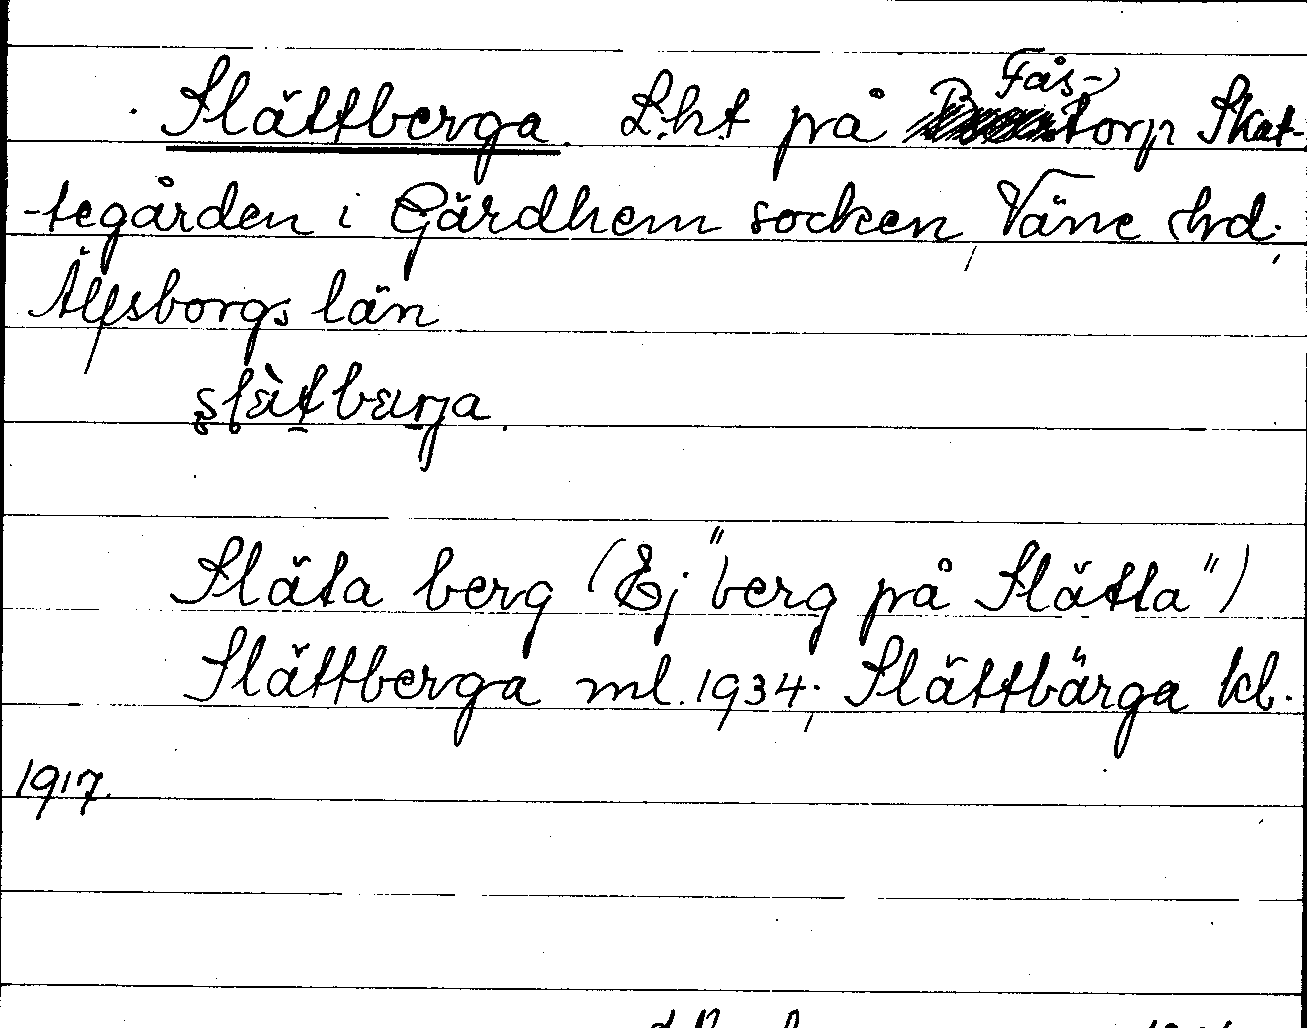 Slättberga. Lht på Fåstorp Skat-
-tegården i Gärdhem socken, Väne hd;
Älfsborgs län
slätbærja.
Släta berg (Ej "berg på Slätta")
Slättberga ml. 1934; Slättbärga kb.
1917.